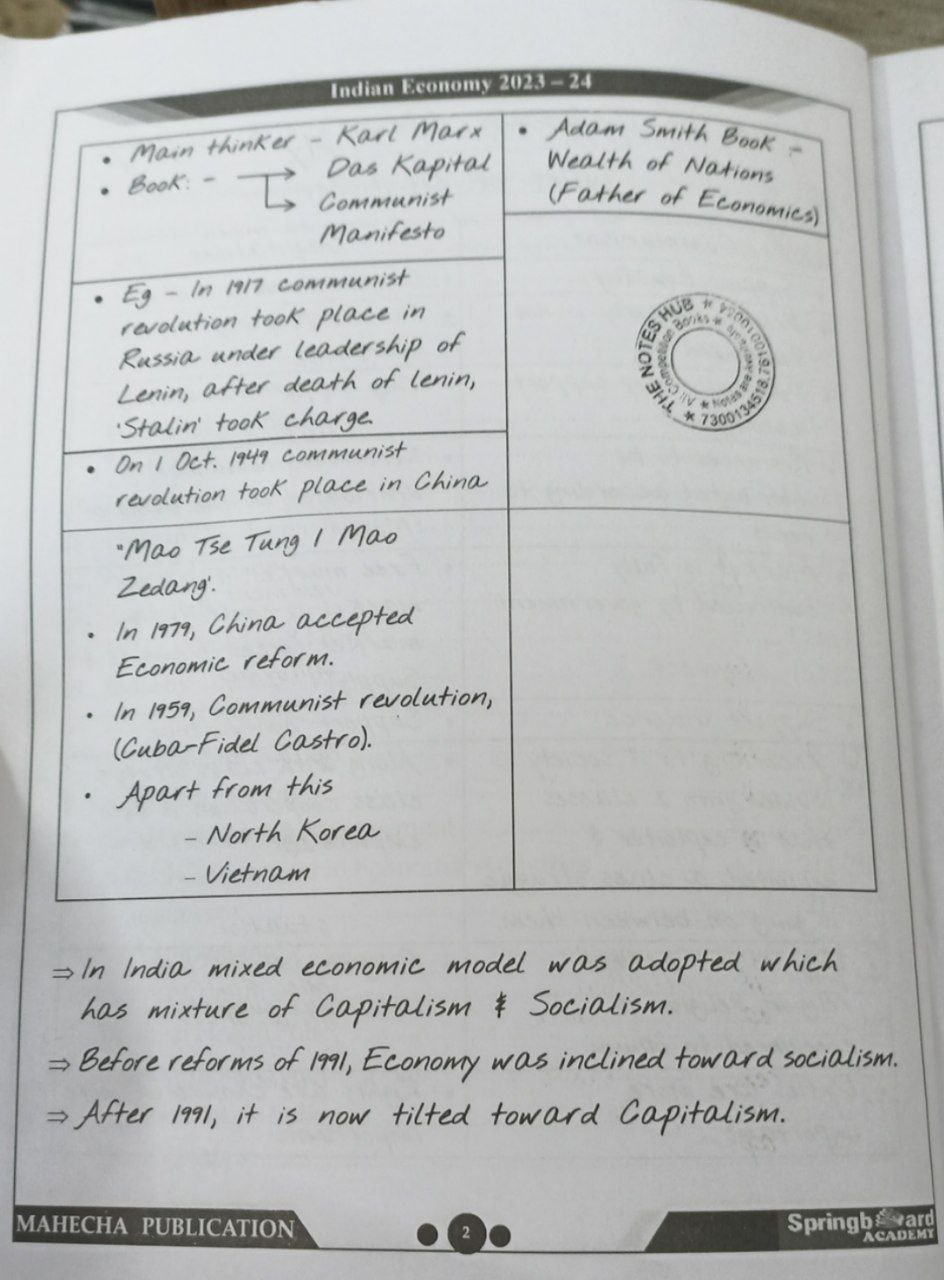 Indian Economy 2023 – 24
• Main thinker - Karl Marx
• Book: - → Das Kapital
→ Communist
Manifesto
• Adam Smith Book -
Wealth of Nations
(Father of Economics)
• Eg - In 1917 communist
revolution took place in
Russia under leadership of
Lenin, after death of lenin,
'Stalin' took charge.
• On 1 Oct. 1949 communist
revolution took place in China
"Mao Tse Tung / Mao
Zedang'.
• In 1979, China accepted
Economic reform.
• In 1959, Communist revolution,
(Cuba-Fidel Castro).
• Apart from this
- North Korea
- Vietnam
THE NOTES HUB
All Competition Books
⇒ In India mixed economic model was adopted which
has mixture of Capitalism & Socialism.
⇒ Before reforms of 1991, Economy was inclined toward socialism.
⇒ After 1991, it is now tilted toward Capitalism.
MAHECHA PUBLICATION
2
Springboard
ACADEMY